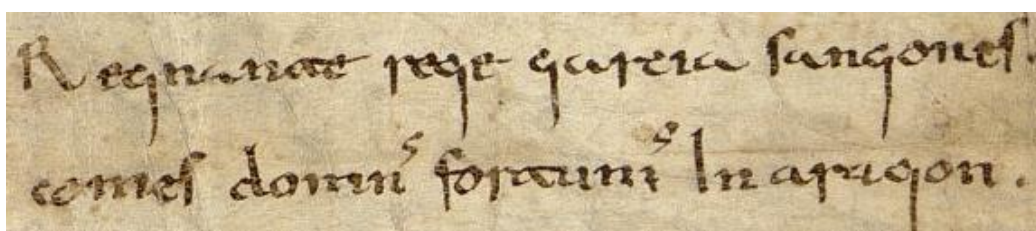 Regnante rege garcia sangones.
comes domnˢ fortunˢ In aragon.